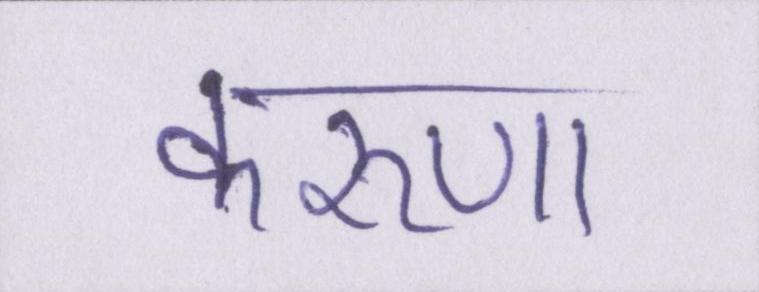 करुणा